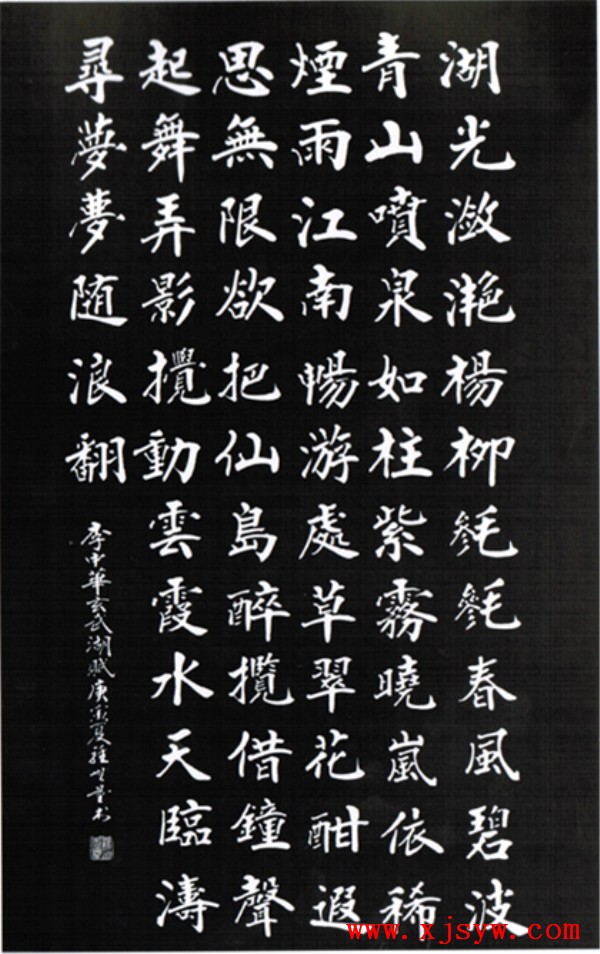 湖光潋滟楊柳毵毿春風碧波
青山噴泉如柱紫霧曉嵐依稀
煙雨江南暢游處草翠花酣遐
思無限欲把仙島醉攬借鐘聲
起舞弄影攪動雲霞水天臨濤
尋夢夢随浪翻
李中華玄武湖賦庚寅夏
www.xjsyw.com